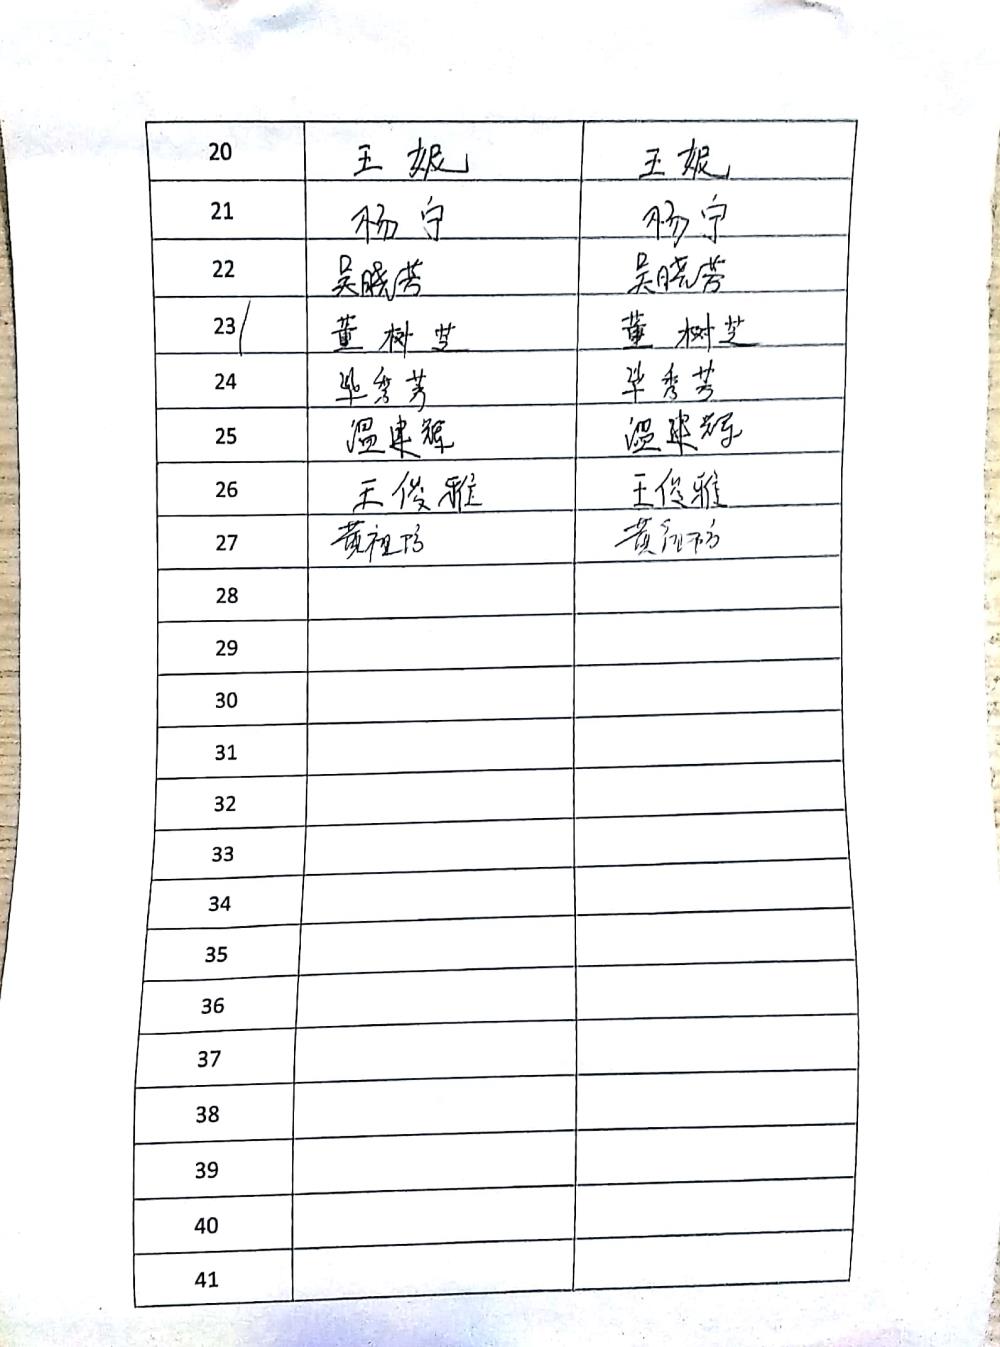 20 王妮 王妮
21 杨宁 杨宁
22 吴晓芳 吴晓芳
23 董树芝 董树芝
24 毕秀芳 毕秀芳
25 温建辉 温建辉
26 王俊雅 王俊雅
27 黄祖防 黄祖防
28
29
30
31
32
33
34
35
36
37
38
39
40
41